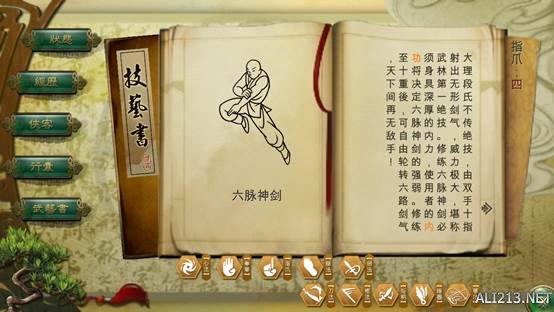 狀態
經歷
俠客
行囊
武藝書
技藝書
六脉神剑
指爪:四
大理段氏不传绝技，由双手十指
射出无形剑气，威力极大，堪称
武林第一绝技。修练六脉神剑必
须身具深厚的内力，使用者的内
功将决定六脉神剑的强弱。修练
至十重後，可自由轮转六路剑气
，天下间再无敌手！
ALI213.NET